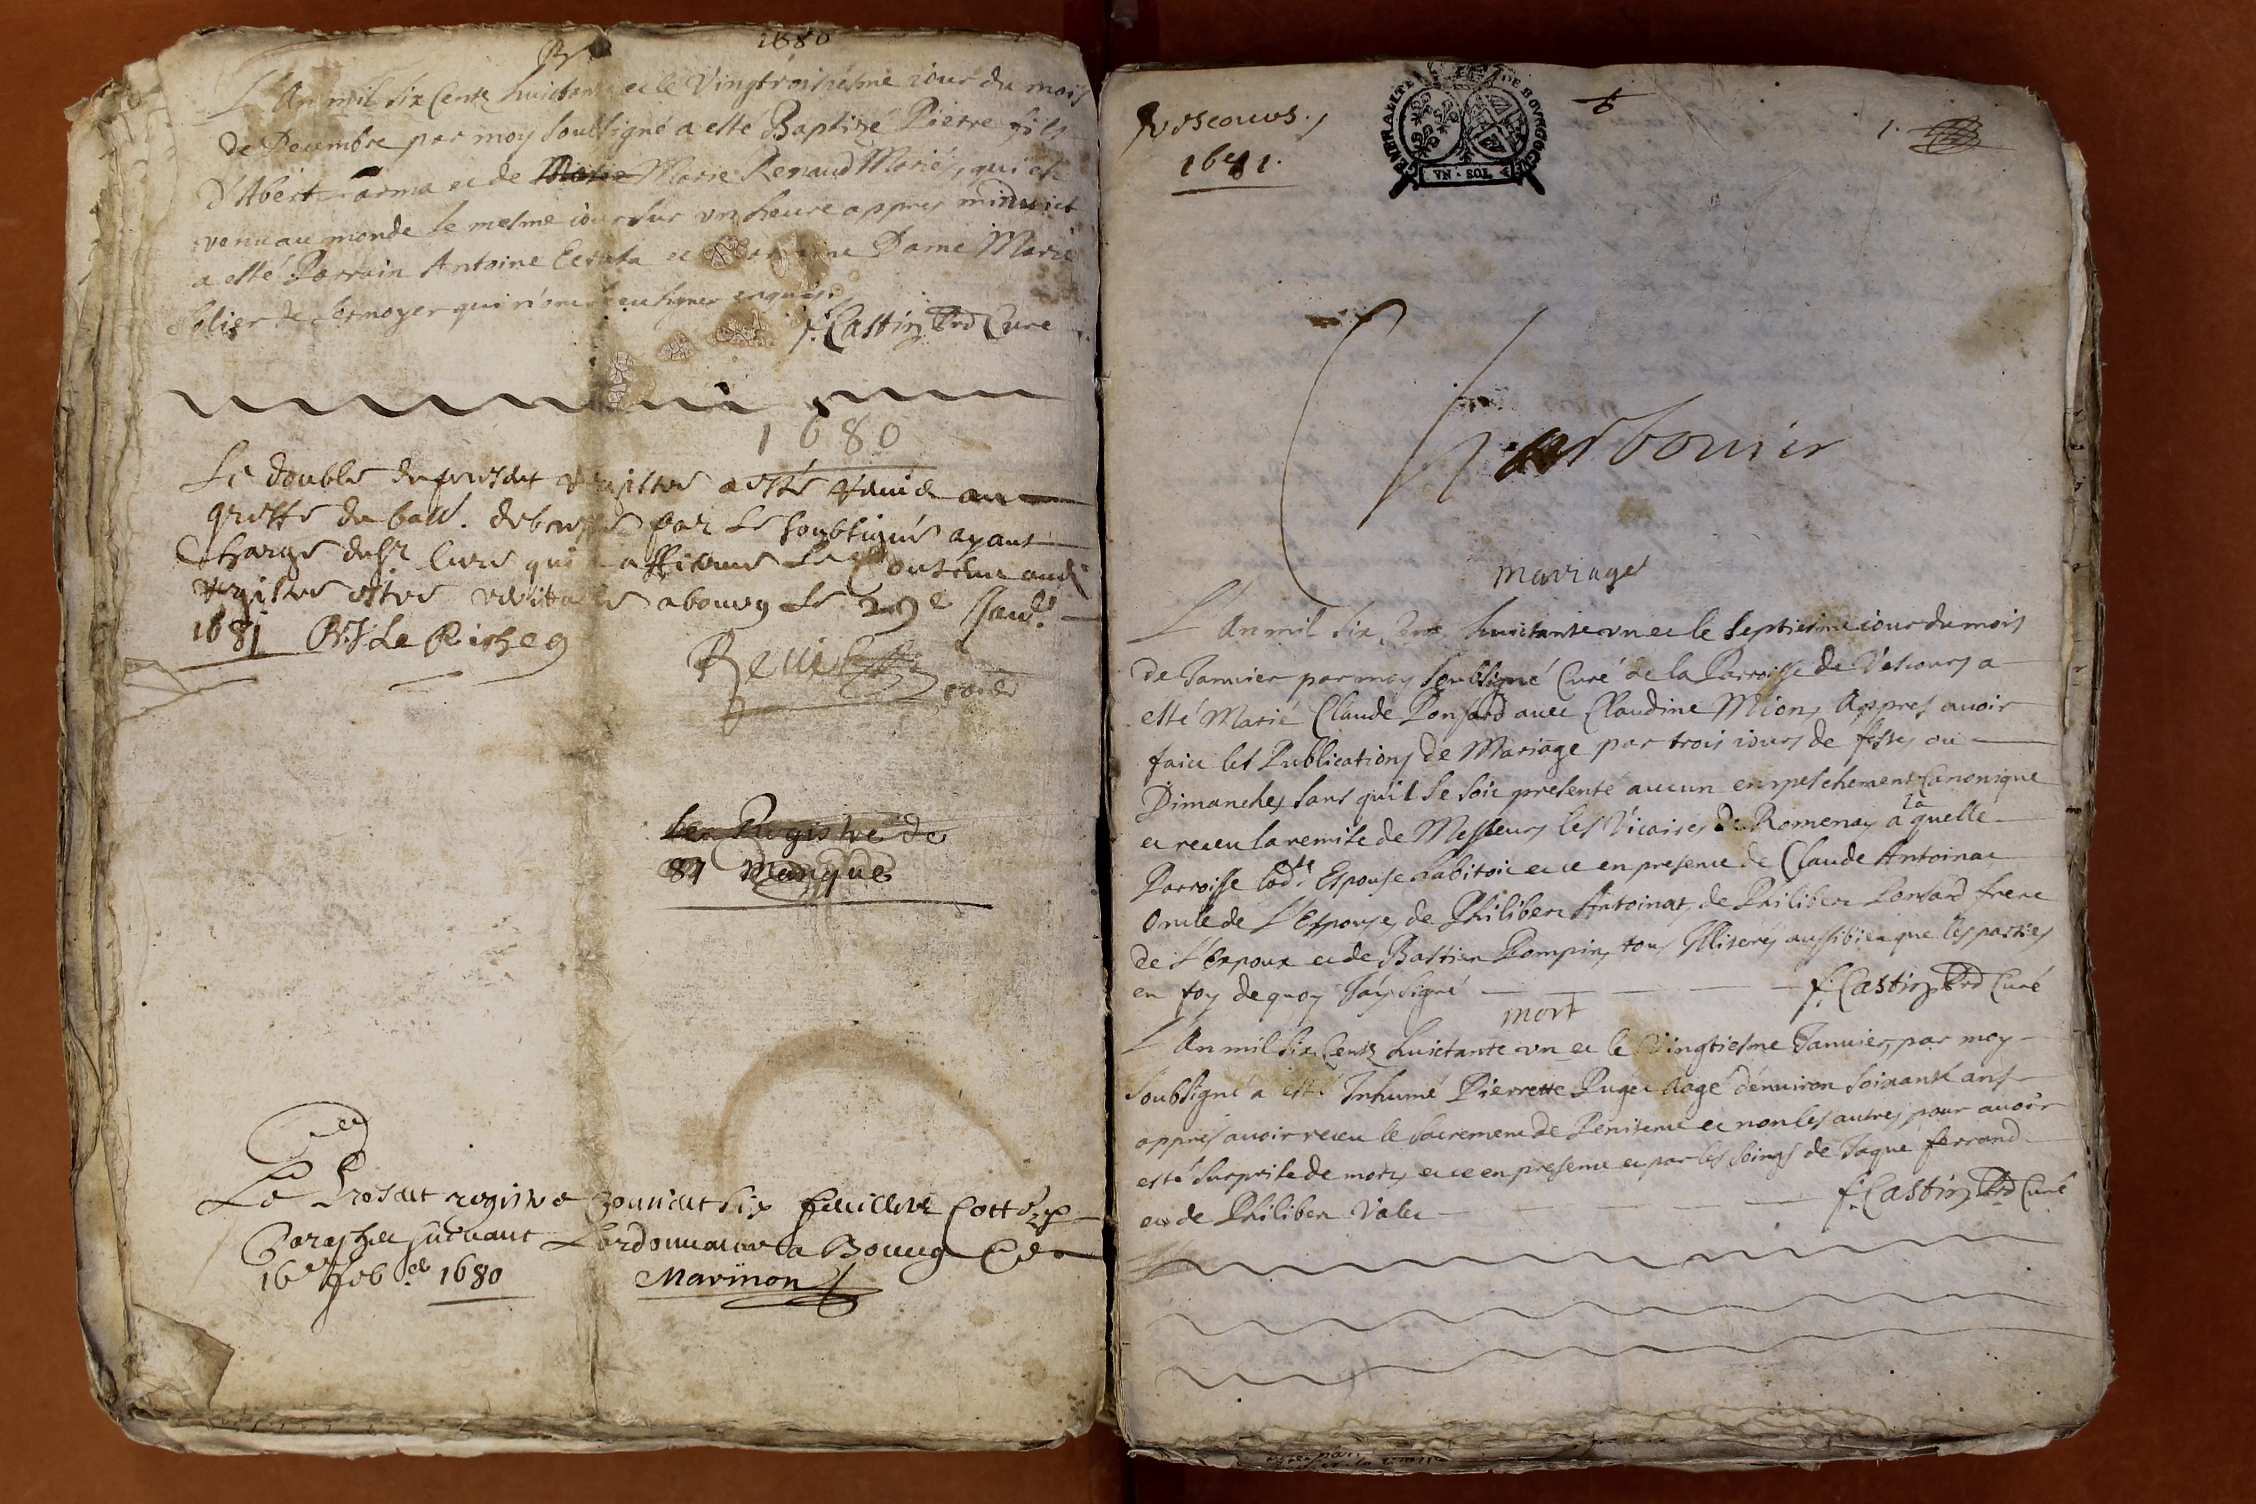 1680
L'An mil Six Cents huictante et le Vingtroisiesme iour du mois
de Decembre par moy soubsigné a esté Baptisé Pierre fils
D'Abert Farma et de Marie Renaud Mariés, qui est
venu au monde le mesme iour sur vn heure appres minuict
a esté Parrain Antoine et Dame Marie
de Sermoyer qui n'ont sceu signer enquis.
f. Castin Prd Cure
1680
Le double du present registre a esté remis au
greffe du baill. de bresse par le soubsigné ayant
charge dud. Sr. Curé qui affirme le Contenu aud.
registre estre veritable a bourg le 29e Janv.
1681
Ler Registre de
81 Manque
Le Present registre Contient six feuillets Cottés
Paraphés suivant L'ordonnance a Bourg Ce
16e feb. 1680 Marinon
Vescours.
1681.
GENERALITE DE BOVRGOGNE
VN · SOL
1.
Charbonier
mariage
L'An mil Six Cents huictante vn et le Septiesme iour du mois
de Januier par moy Soubsigné Curé de la Parroisse de Vescours a
esté Marié Claude Ponsard auec Claudine Mion, Appres auoir
faict les Publications de Mariage par trois iours de festes ou
Dimanches sans qu'il se soit presenté aucun empeschement Canonique
et receu la remise de Messieurs les Vicaires de Romenay a la quelle
Parroisse lad.te Espouse habitoit et ce en presence de Claude Antoinat
Oncle de L'Espouse, de Philibert Antoinat, de Philibert Ponsard frere
de L'Expoux et de Bastien Pompin, tous Illiterés aussi bien que les parties
en foy de quoy J'ay signé f. Castin Prd Curé
mort
L'An mil Six Cents huictante vn et le Vingtiesme Januier, par moy
Soubsigné a esté Inhumé Pierrette Puget Aagé d'enuiron Soixante ans
appres auoir receu le Sacrement de Penitence et non les autres pour auoir
esté Surprise de mort, et ce en presence et par les soings de Jaque ferrand
et de Philibert Valet f. Castin Prd Curé